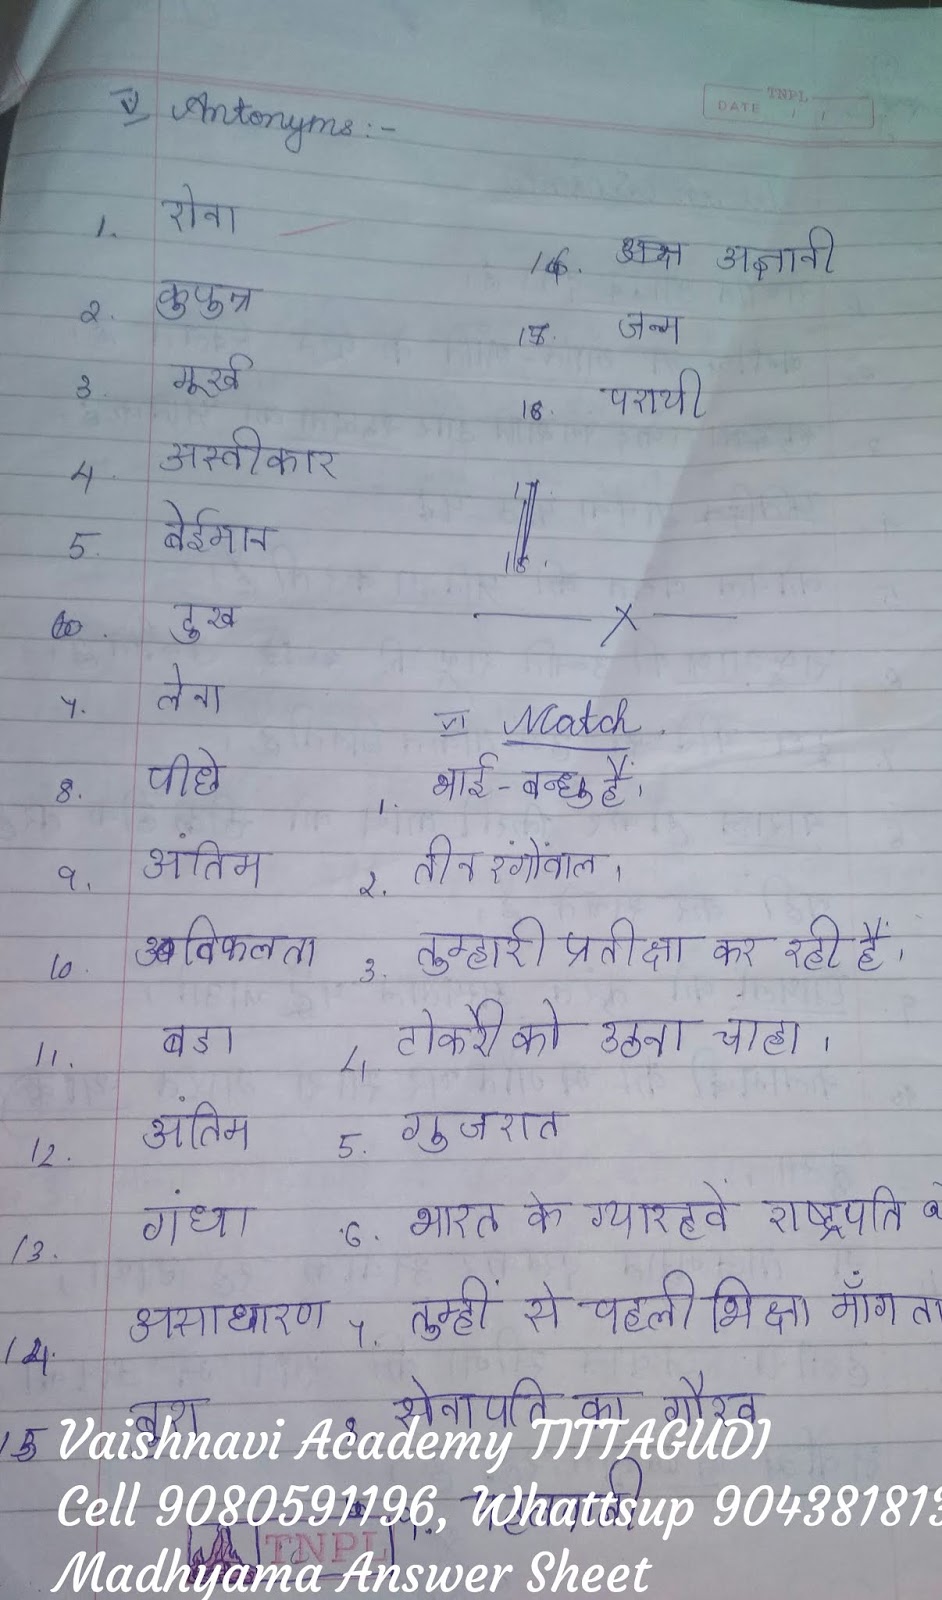 TNPL
DATE / /
V Antonyms:-
1. रोना
2. कुपुत्र
3. मूर्ख
4. अस्वीकार
5. बेईमान
6. दुख
7. लेना
8. पीछे
9. अंतिम
10. अविकलता
11. बडा
12. अंतिम
13. गंधा
14. असाधारण
15 बुरा
16. अज्ञानी
17. जन्म
18. परायी
VI Match.
1. भाई-बन्धु हैं।
2. तीन रंगोंवाल।
3. तुम्हारी प्रतीक्षा कर रही हैं।
4. टोकरी को उठना चाहा।
5. गुजरात
6. भारत के ग्यारहवें राष्ट्रपति
7. तुम्हीं से पहली भिक्षा माँगता
8 सेनापति का गौरव
9.
Vaishnavi Academy TITTAGUDI
Cell 9080591196, Whattsup 904381813
Madhyama Answer Sheet
TNPL